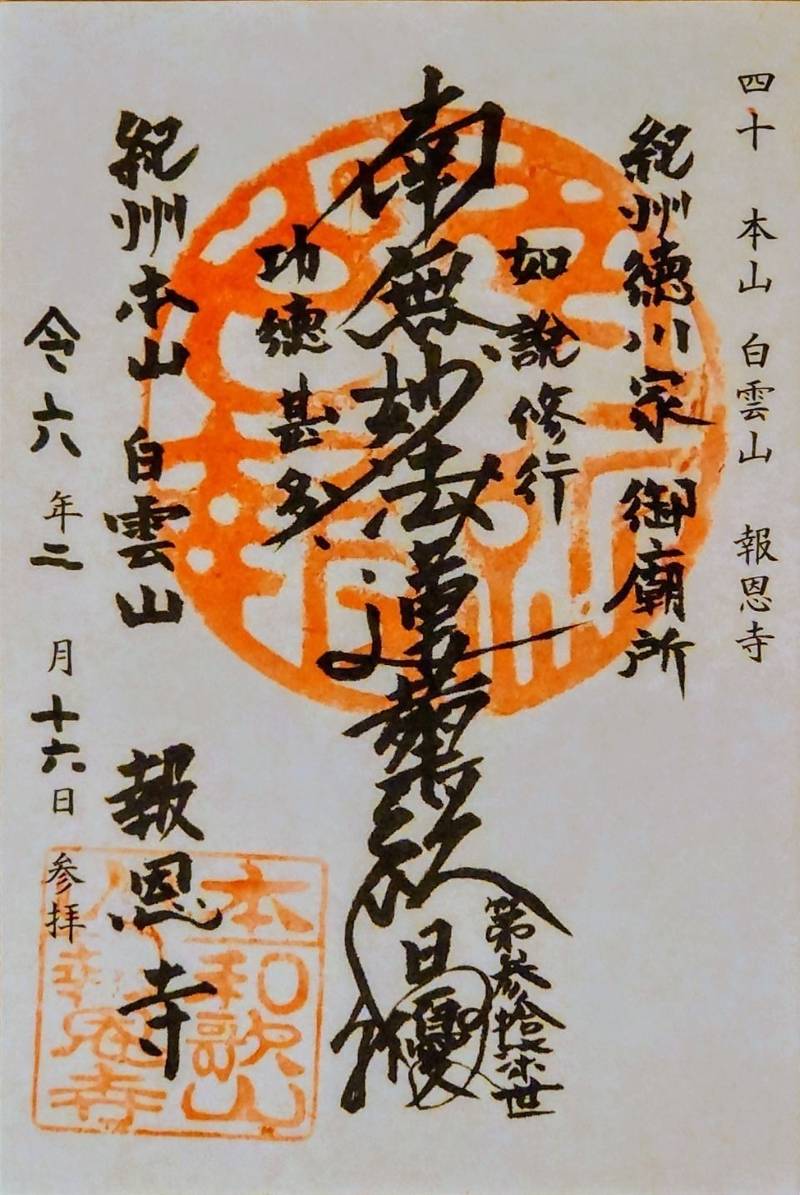 四十 本山 白雲山 報恩寺
紀州徳川家 御廟所
如說修行
南無妙法蓮華経
功徳甚多
日優
紀州本山 白雲山 報恩寺
令六年二月十六日 参拝
本山
和歌山
報恩寺